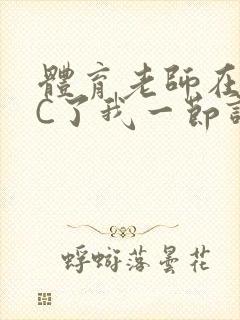 體育老師在
C了我一節
蜉蝣落曇花